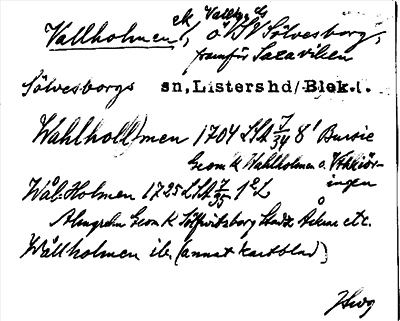 Vallholmen, ek, Vallh. L
ö. V. Sölvesborg,
framför Saxaviken
Sölvesborgs sn, Listers hd/Blek.l.
Wahlholl)men 1704 LSA 7/34 8' Bursie
Geom K Wahlholmen o. Utskiör-
ingen
Wål-Holmen 1725 LSA 7/35 1:L
Almgrehn Geom K Sölfwitsborg Stadz Åkrar etc.
Wållholmen ib. (annat kartblad)